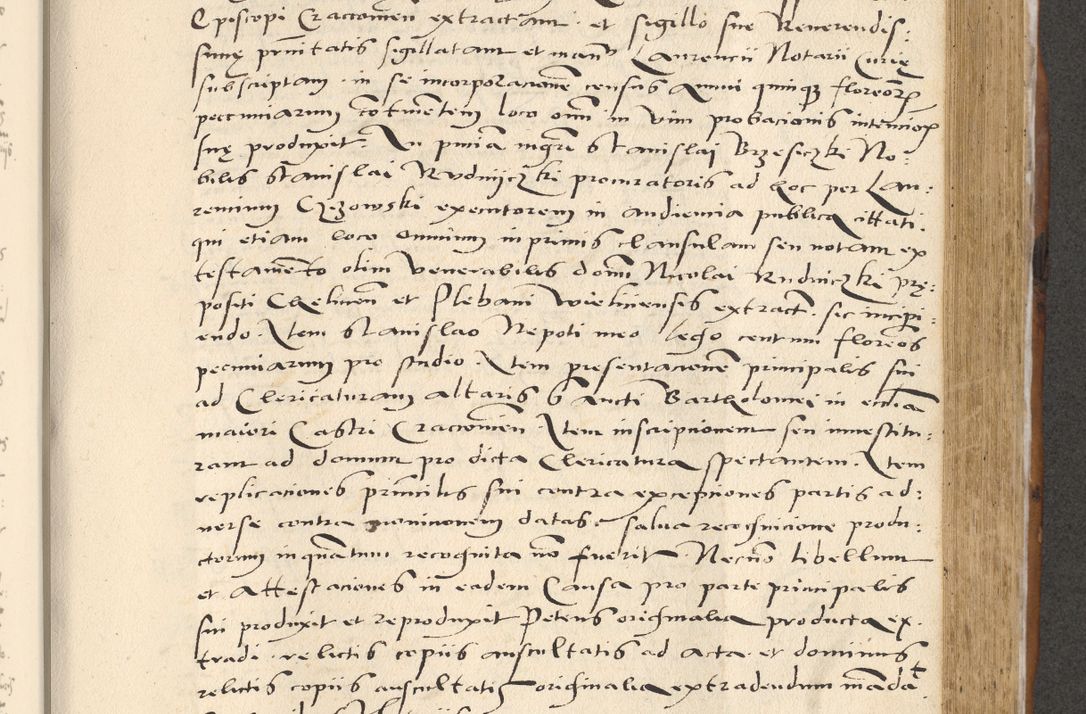 Episcopi Cracovien extractam et sigillo sue Reverendis:
ssubscriptam in se incorporacione census annui quinque florenor
pecuniarum continentem loco omni in vim probacionis intencior
suę produxit. In pnciã mgri Stanislai Brzesiczki No:
bilis Stanislai Rudniczki procuratoris ad hoc per Lau:
rencium Czężowski executorem in audiencia publica cittati.
qui etiam loco omnium inprimis clausulam seu notam ex
testamento olim venerabilis domi Nicolai Rudniczki prę:
positi Chelmen et Plebani Wieliciensis extract. sic incipi:
endo. Item Stanislao Nepoti meo lego centum florenos
pecuniarum pro studio. Item presentacionem principalis sui
ad Clericaturam altaris Sancti Bartholomei in eccliã
maiori Castri Cracovien. Item inscriptionem seu investitu:
ram ad domum pro dicta Clericatura spectantem. Item
replicaciones principlis sui contra excepciones partis ad:
verse contra monicionem datas. salva recognicione produ:
ctorum inquantum recognita nõ fuerit. Necnõ libellum
et Attestaciones in eadem Causa pro parte principalis
sui produxit et reproduxit Petens originalia producta ex:
tradi. relictis copiis auscultatis ad acta. et dominus
relictis copiis auscultatis originalia extradendum mãdat